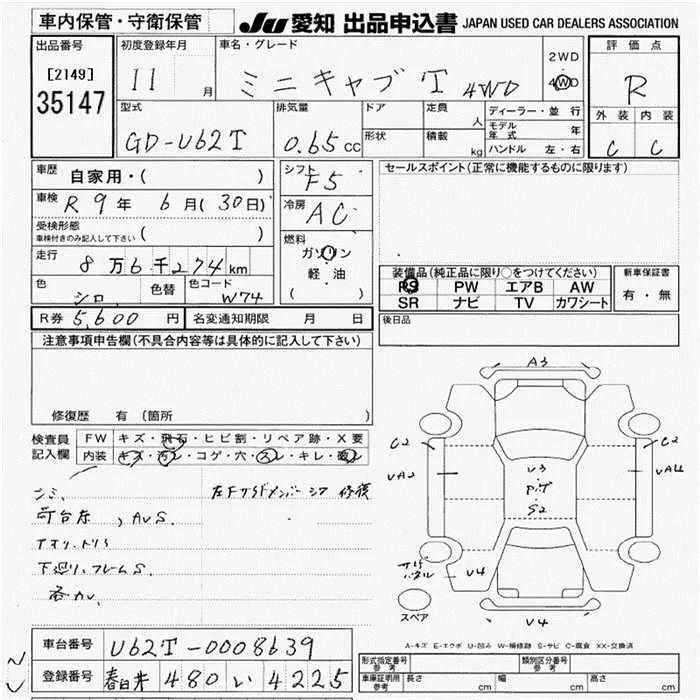 車内保管・守衛保管 JU 愛知 出品申込書 JAPAN USED CAR DEALERS ASSOCIATION
出品番号 初度登録年月 車名・グレード 2WD 4WD 評価点
[2149] 11 月 ミニキャブT 4WD R
35147 型式 排気量 ドア 定員 人 ディーラー・並行 外装 内装
モデル年式 年
GD-U62T 0.65cc 形状 積載 kg ハンドル 左・右 C C
車歴 自家用・( ) シフト F5 セールスポイント(正常に機能するものに限ります)
車検 R9年 6月(30日) 冷房 AC
受検形態 車検付きのみ記入して下さい ( )
燃料 ガソリン 軽油 ( )
走行 8万6千274km
装備品(純正品に限り○をつけてください) 新車保証書
色 シロ 色替 色コード W74
PS PW エアB AW 有・無
SR ナビ TV カワシート
R券 5,600円 名変通知期限 月 日 後日品
注意事項申告欄(不具合内容等は具体的に記入して下さい)
修復歴 有(箇所 )
A3
検査員記入欄 FW キズ・飛石・ヒビ割・リペア跡・X要
内装 キズ・汚レ・コゲ・穴・スレ・キレ・
C2 C2
UA2 UA4
U3
S2
左 修復
AUS.
下廻リ、フレームS.
U4
スペア
U4
A-キズ E-エクボ U-凹み W-補修跡 S-サビ C-腐食 XX-交換済
車台番号 U62T-0008639
型式指定番号 参考 類別区分番号 参考
登録番号 春日井 480 い 4225
車庫証明用 参考 長さ cm 幅 cm 高さ cm